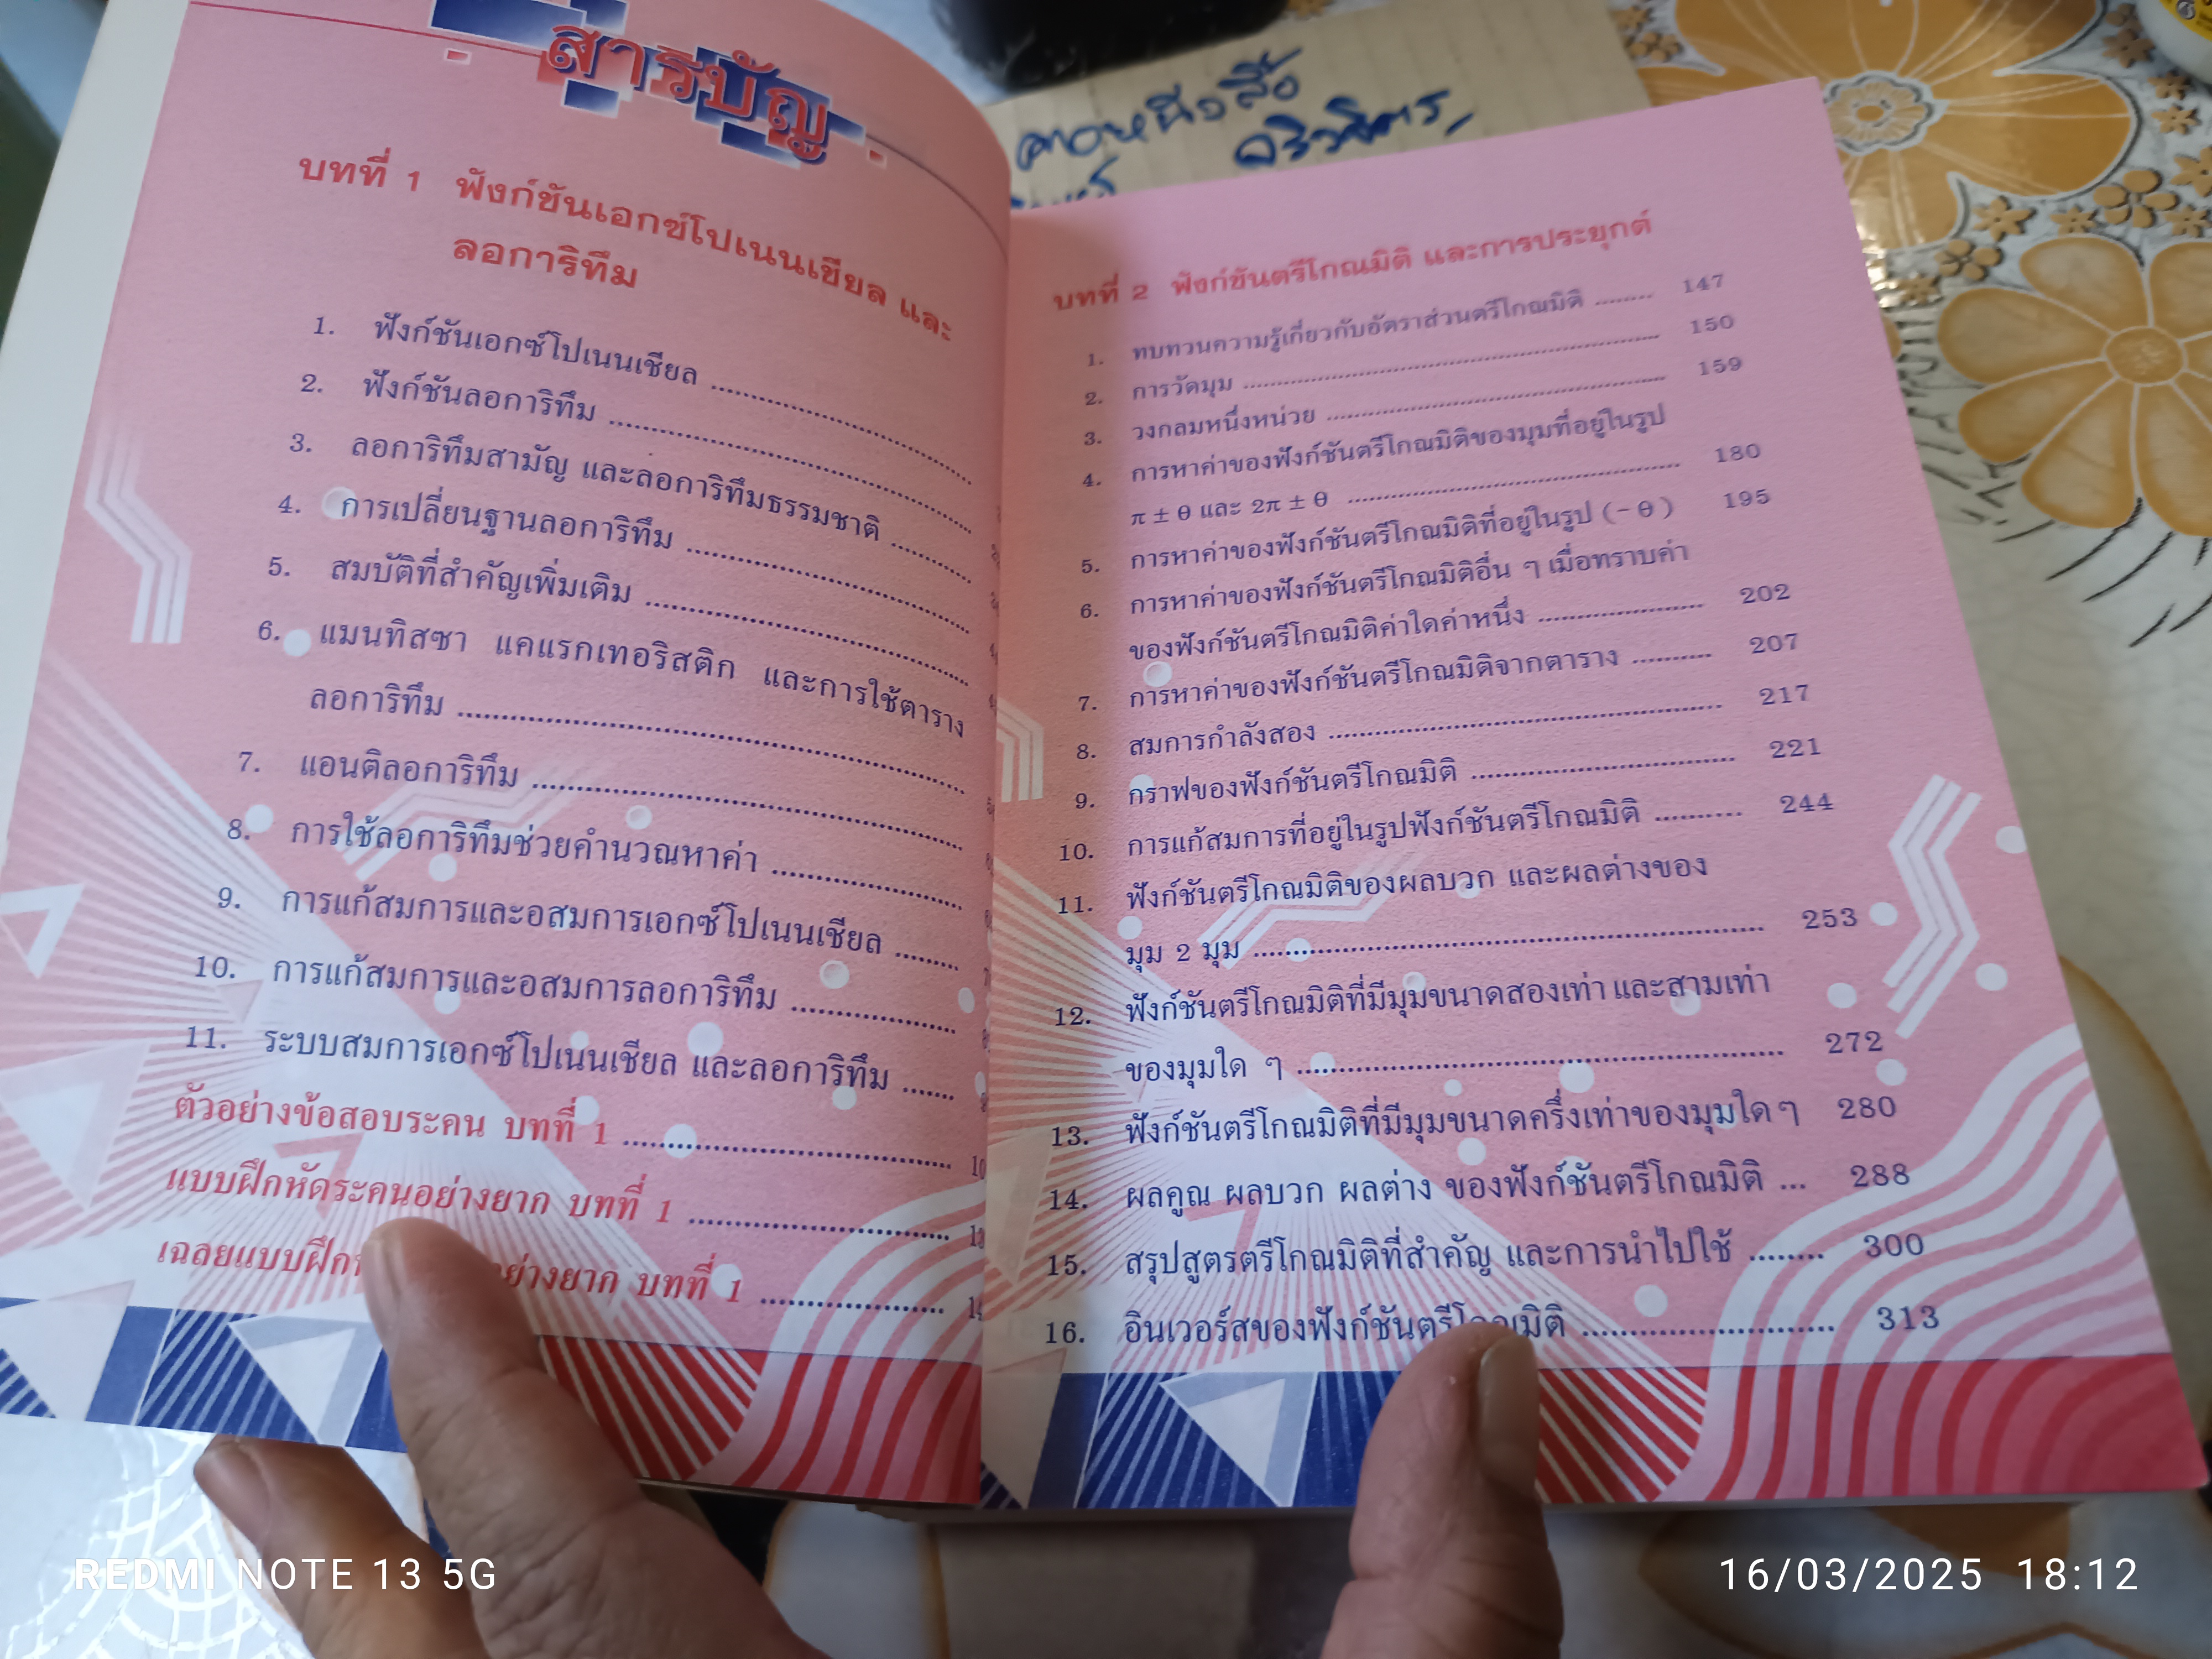 สารบัญ
บทที่ 1 ฟังก์ชันเอกซ์โปเนนเชียล และ
ลอการิทึม
1. ฟังก์ชันเอกซ์โปเนนเชียล ..............................
2. ฟังก์ชันลอการิทึม ..........................................
3. ลอการิทึมสามัญ และลอการิทึมธรรมชาติ .........
4. การเปลี่ยนฐานลอการิทึม ................................
5. สมบัติที่สำคัญเพิ่มเติม .....................................
6. แมนทิสซา แคแรกเทอริสติก และการใช้ตาราง
ลอการิทึม ..........................................................
7. แอนติลอการิทึม ................................................
8. การใช้ลอการิทึมช่วยคำนวณหาค่า .....................
9. การแก้สมการและอสมการเอกซ์โปเนนเชียล .......
10. การแก้สมการและอสมการลอการิทึม ..................
11. ระบบสมการเอกซ์โปเนนเชียล และลอการิทึม ......
ตัวอย่างข้อสอบระคน บทที่ 1 ....................................
แบบฝึกหัดระคนอย่างยาก บทที่ 1 .............................
เฉลยแบบฝึก อย่างยาก บทที่ 1 ....................
บทที่ 2 ฟังก์ชันตรีโกณมิติ และการประยุกต์
1. ทบทวนความรู้เกี่ยวกับอัตราส่วนตรีโกณมิติ ........ 147
2. การวัดมุม .......................................................... 150
3. วงกลมหนึ่งหน่วย ............................................... 159
4. การหาค่าของฟังก์ชันตรีโกณมิติของมุมที่อยู่ในรูป
π ± θ และ 2π ± θ ................................................ 180
5. การหาค่าของฟังก์ชันตรีโกณมิติที่อยู่ในรูป (- θ) 195
6. การหาค่าของฟังก์ชันตรีโกณมิติอื่น ๆ เมื่อทราบค่า
ของฟังก์ชันตรีโกณมิติค่าใดค่าหนึ่ง ....................... 202
7. การหาค่าของฟังก์ชันตรีโกณมิติจากตาราง .......... 207
8. สมการกำลังสอง ................................................ 217
9. กราฟของฟังก์ชันตรีโกณมิติ ................................ 221
10. การแก้สมการที่อยู่ในรูปฟังก์ชันตรีโกณมิติ .......... 244
11. ฟังก์ชันตรีโกณมิติของผลบวก และผลต่างของ
มุม 2 มุม ............................................................. 253
12. ฟังก์ชันตรีโกณมิติที่มีมุมขนาดสองเท่า และสามเท่า
ของมุมใด ๆ .......................................................... 272
13. ฟังก์ชันตรีโกณมิติที่มีมุมขนาดครึ่งเท่าของมุมใด ๆ 280
14. ผลคูณ ผลบวก ผลต่าง ของฟังก์ชันตรีโกณมิติ ... 288
15. สรุปสูตรตรีโกณมิติที่สำคัญ และการนำไปใช้ ........ 300
16. อินเวอร์สของฟังก์ชันตรีโกณมิติ .......................... 313
REDMI NOTE 13 5G
16/03/2025 18:12